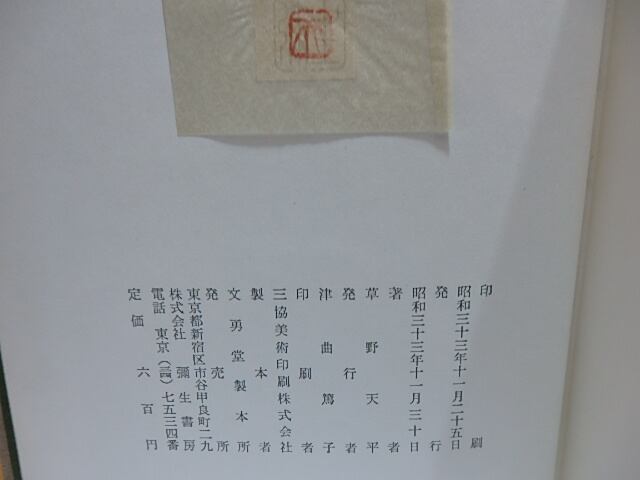 印刷
昭和三十三年十一月二十五日
発行
昭和三十三年十一月三十日
著者
草野天平
発行者
津曲篤子
印刷者
三協美術印刷株式会社
製本者
文勇堂製本所
発売所
東京都新宿区市谷甲良町二九
株式会社 彌生書房
電話 東京(三四)七五三四番
定価 六百円